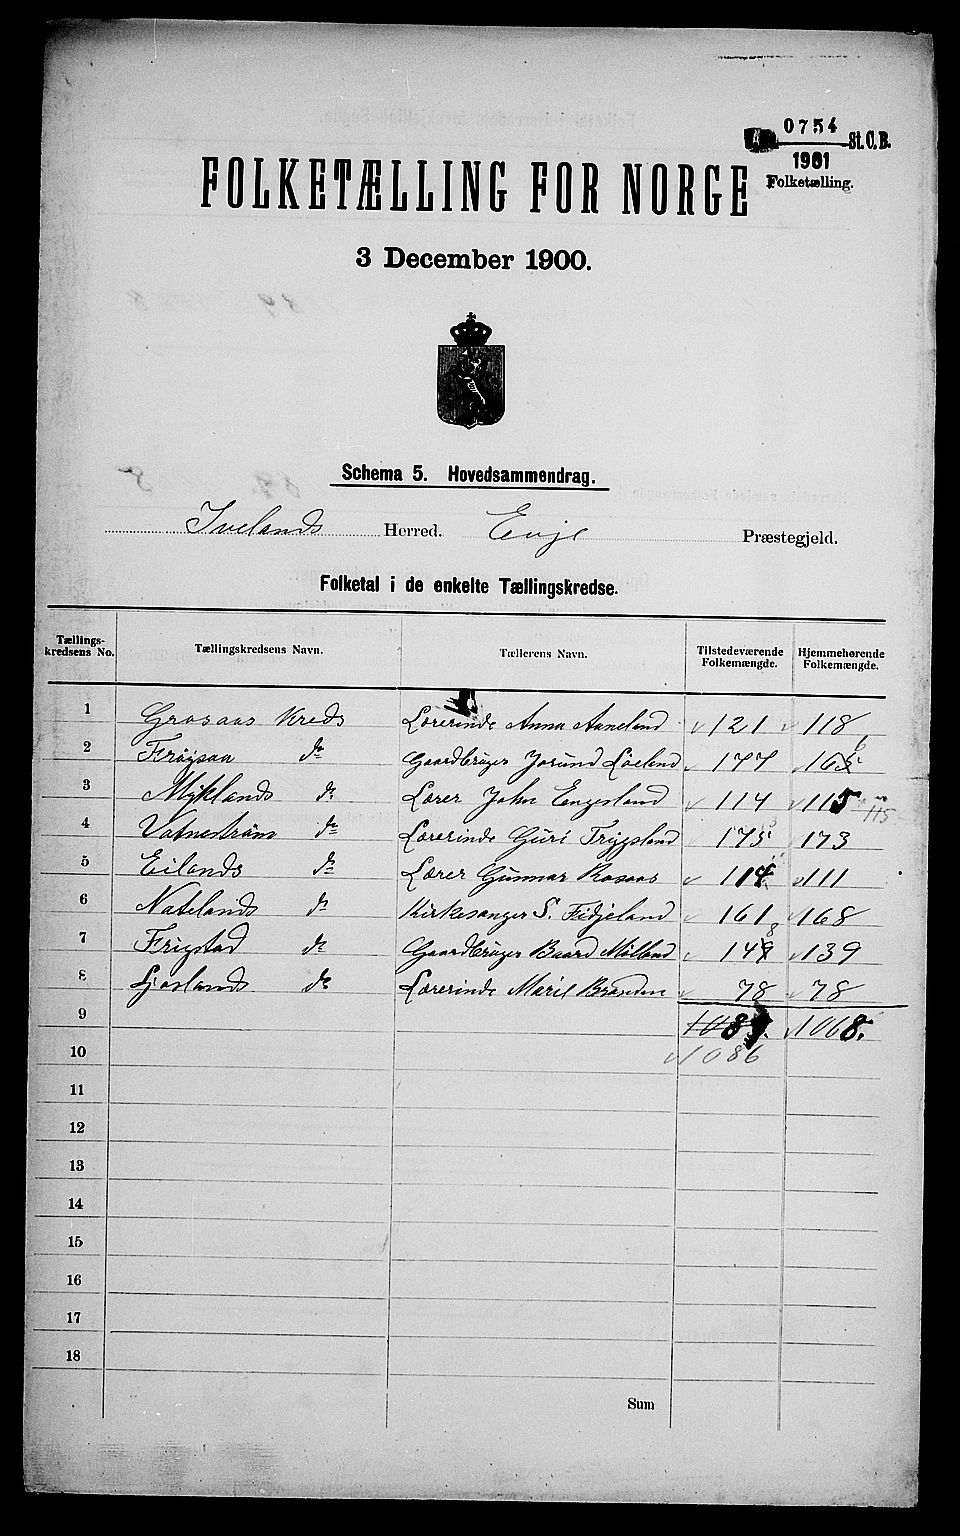 0754
St. C. B.
1901
Folketælling.
FOLKETÆLLING FOR NORGE
3 December 1900.
Schema 5. Hovedsammendrag.
Ivelands Herred. Evje Præstegjeld.
Folketal i de enkelte Tællingskredse.
Tællings-kredsens No. Tællingskredsens Navn. Tællerens Navn. Tilstedeværende Folkemængde. Hjemmehørende Folkemængde.
1 Grosaas Kreds Lærerinde Anna Aaneland 121 118
2 Frøysaa do Gaardbruger Jorund Løland 177
3 Myklands do Lærer John Engesland 114 115 115
4 Vatnestrøm do Lærerinde Guri Tryggsland 173
5 Eilands do Lærer Gunnar Rosaas 111
6 Natelands do Kirkesanger S. Fidjeland 161 168
7 Frigstad do Gaardbruger Baard Mølland 139
8 Ljoslands do Lærerinde Marie Branden 78 78
9 1008.
10 1086
11
12
13
14
15
16
17
18
Sum